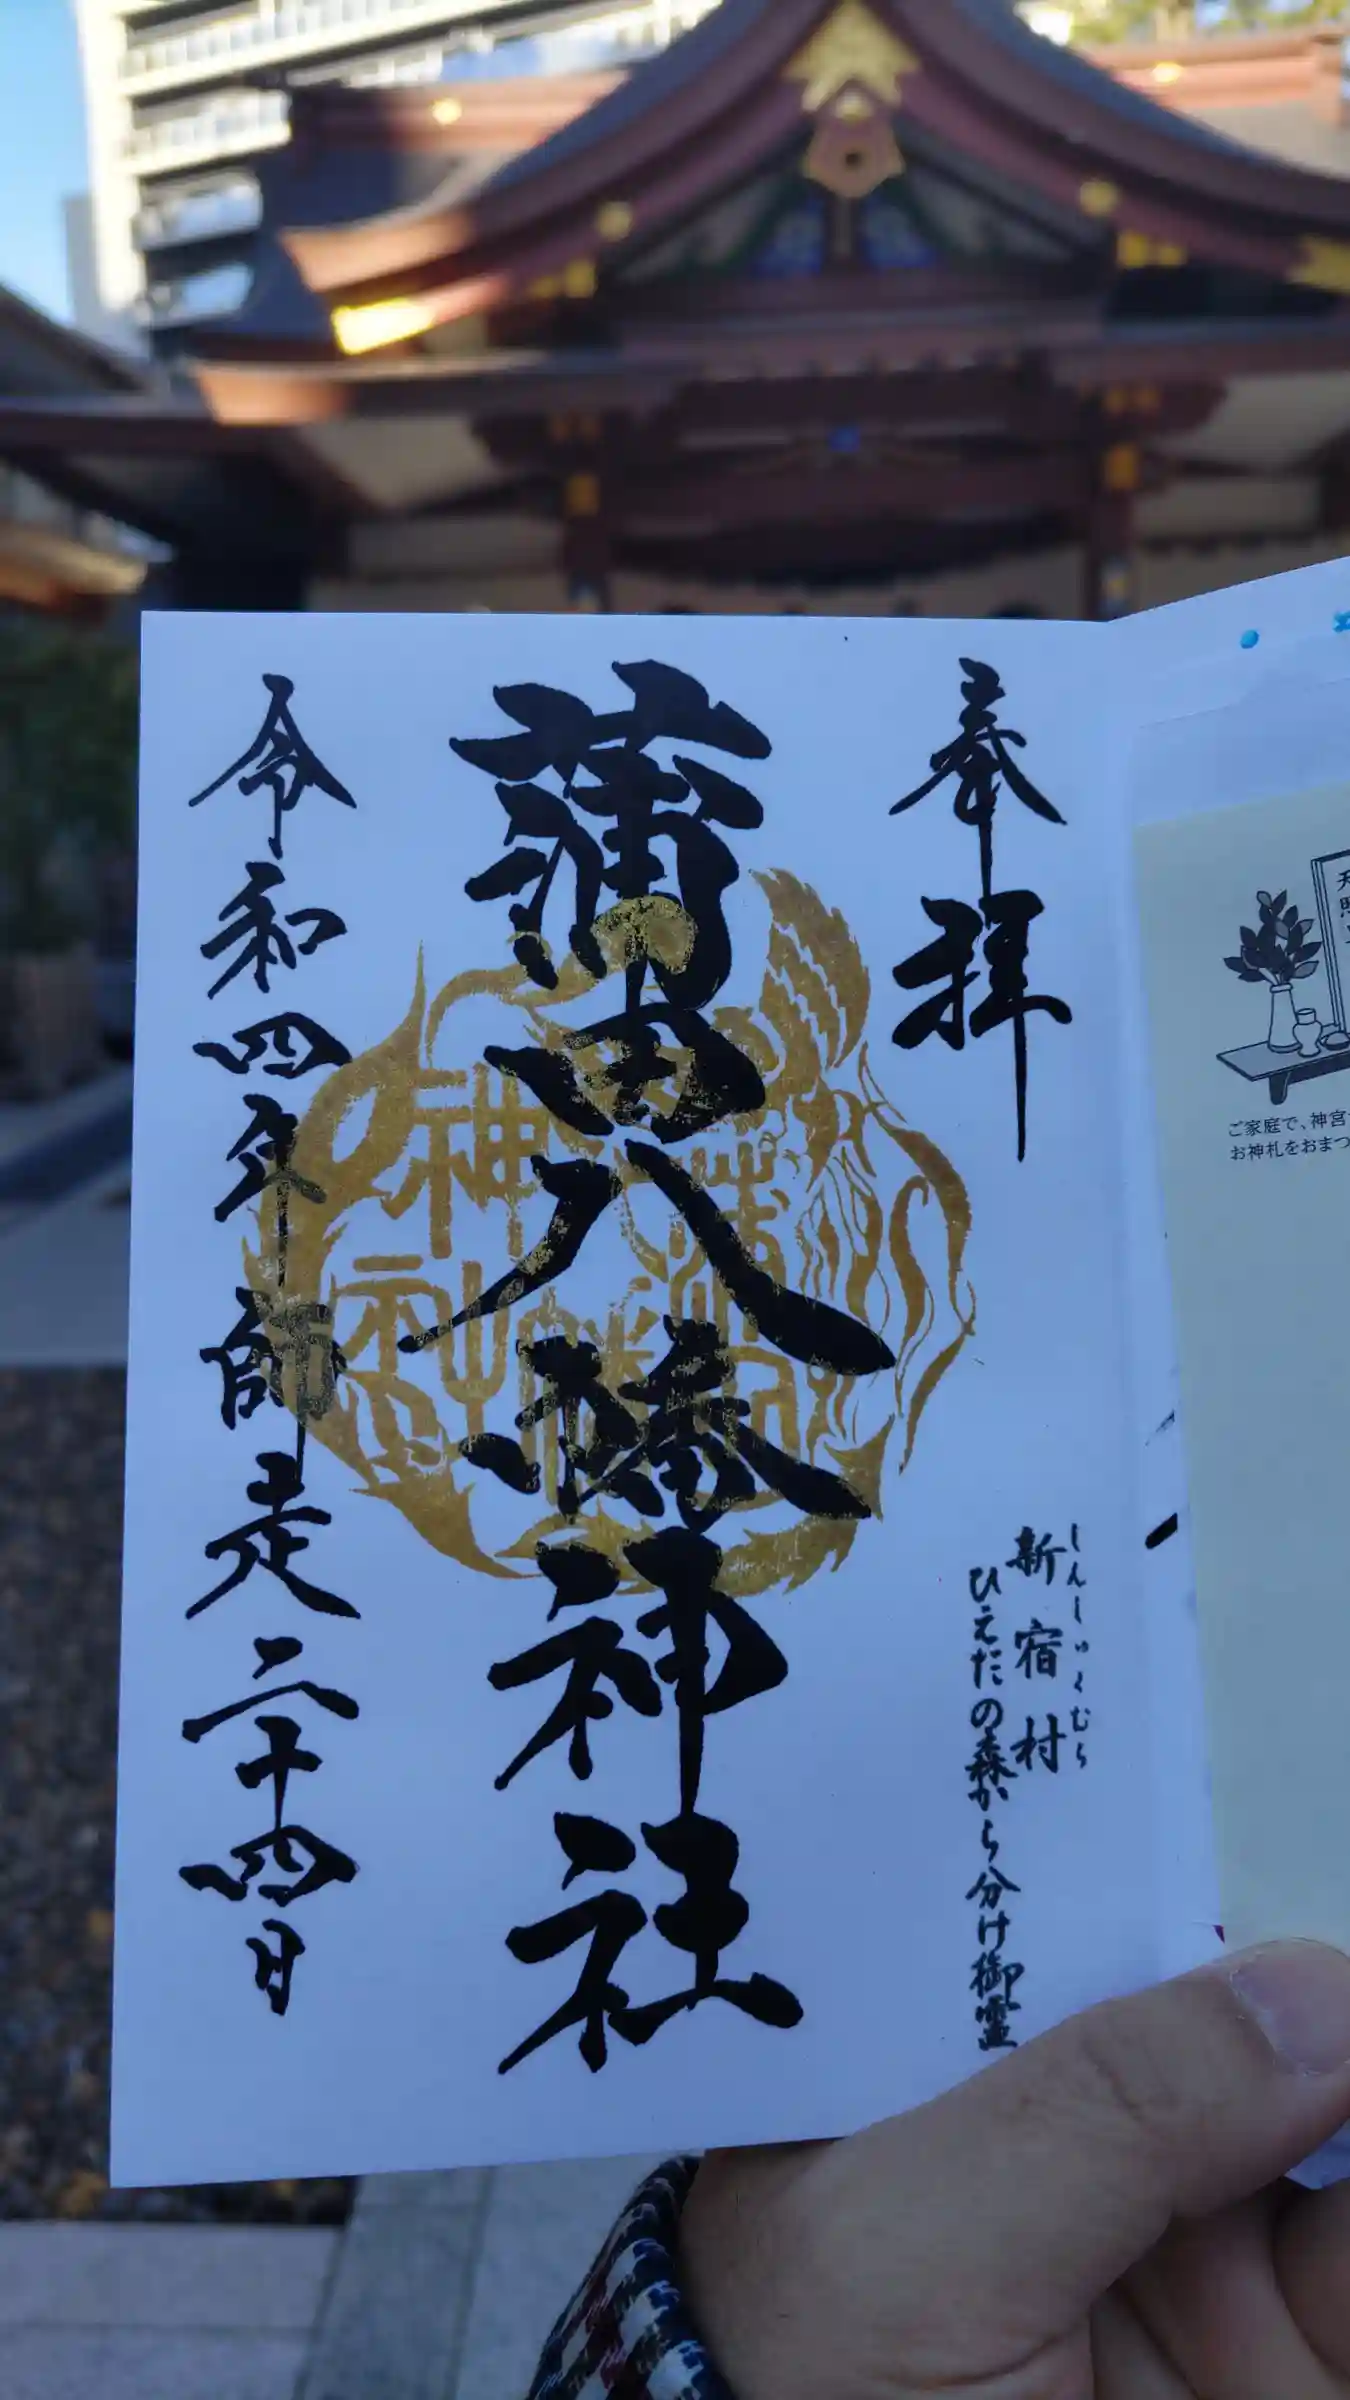 ご家庭で、神宮
お神札をおまつ
奉拝
しんしゅくむら
新宿村
ひえだの森から分け御霊
蒲田八幡神社
令和四年師走二十四日